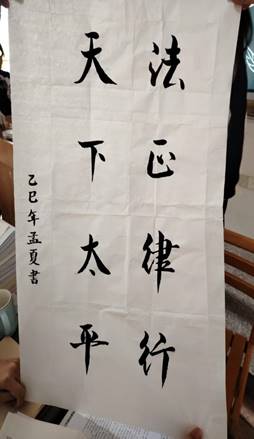 法正律行
天下太平
乙巳年孟夏书